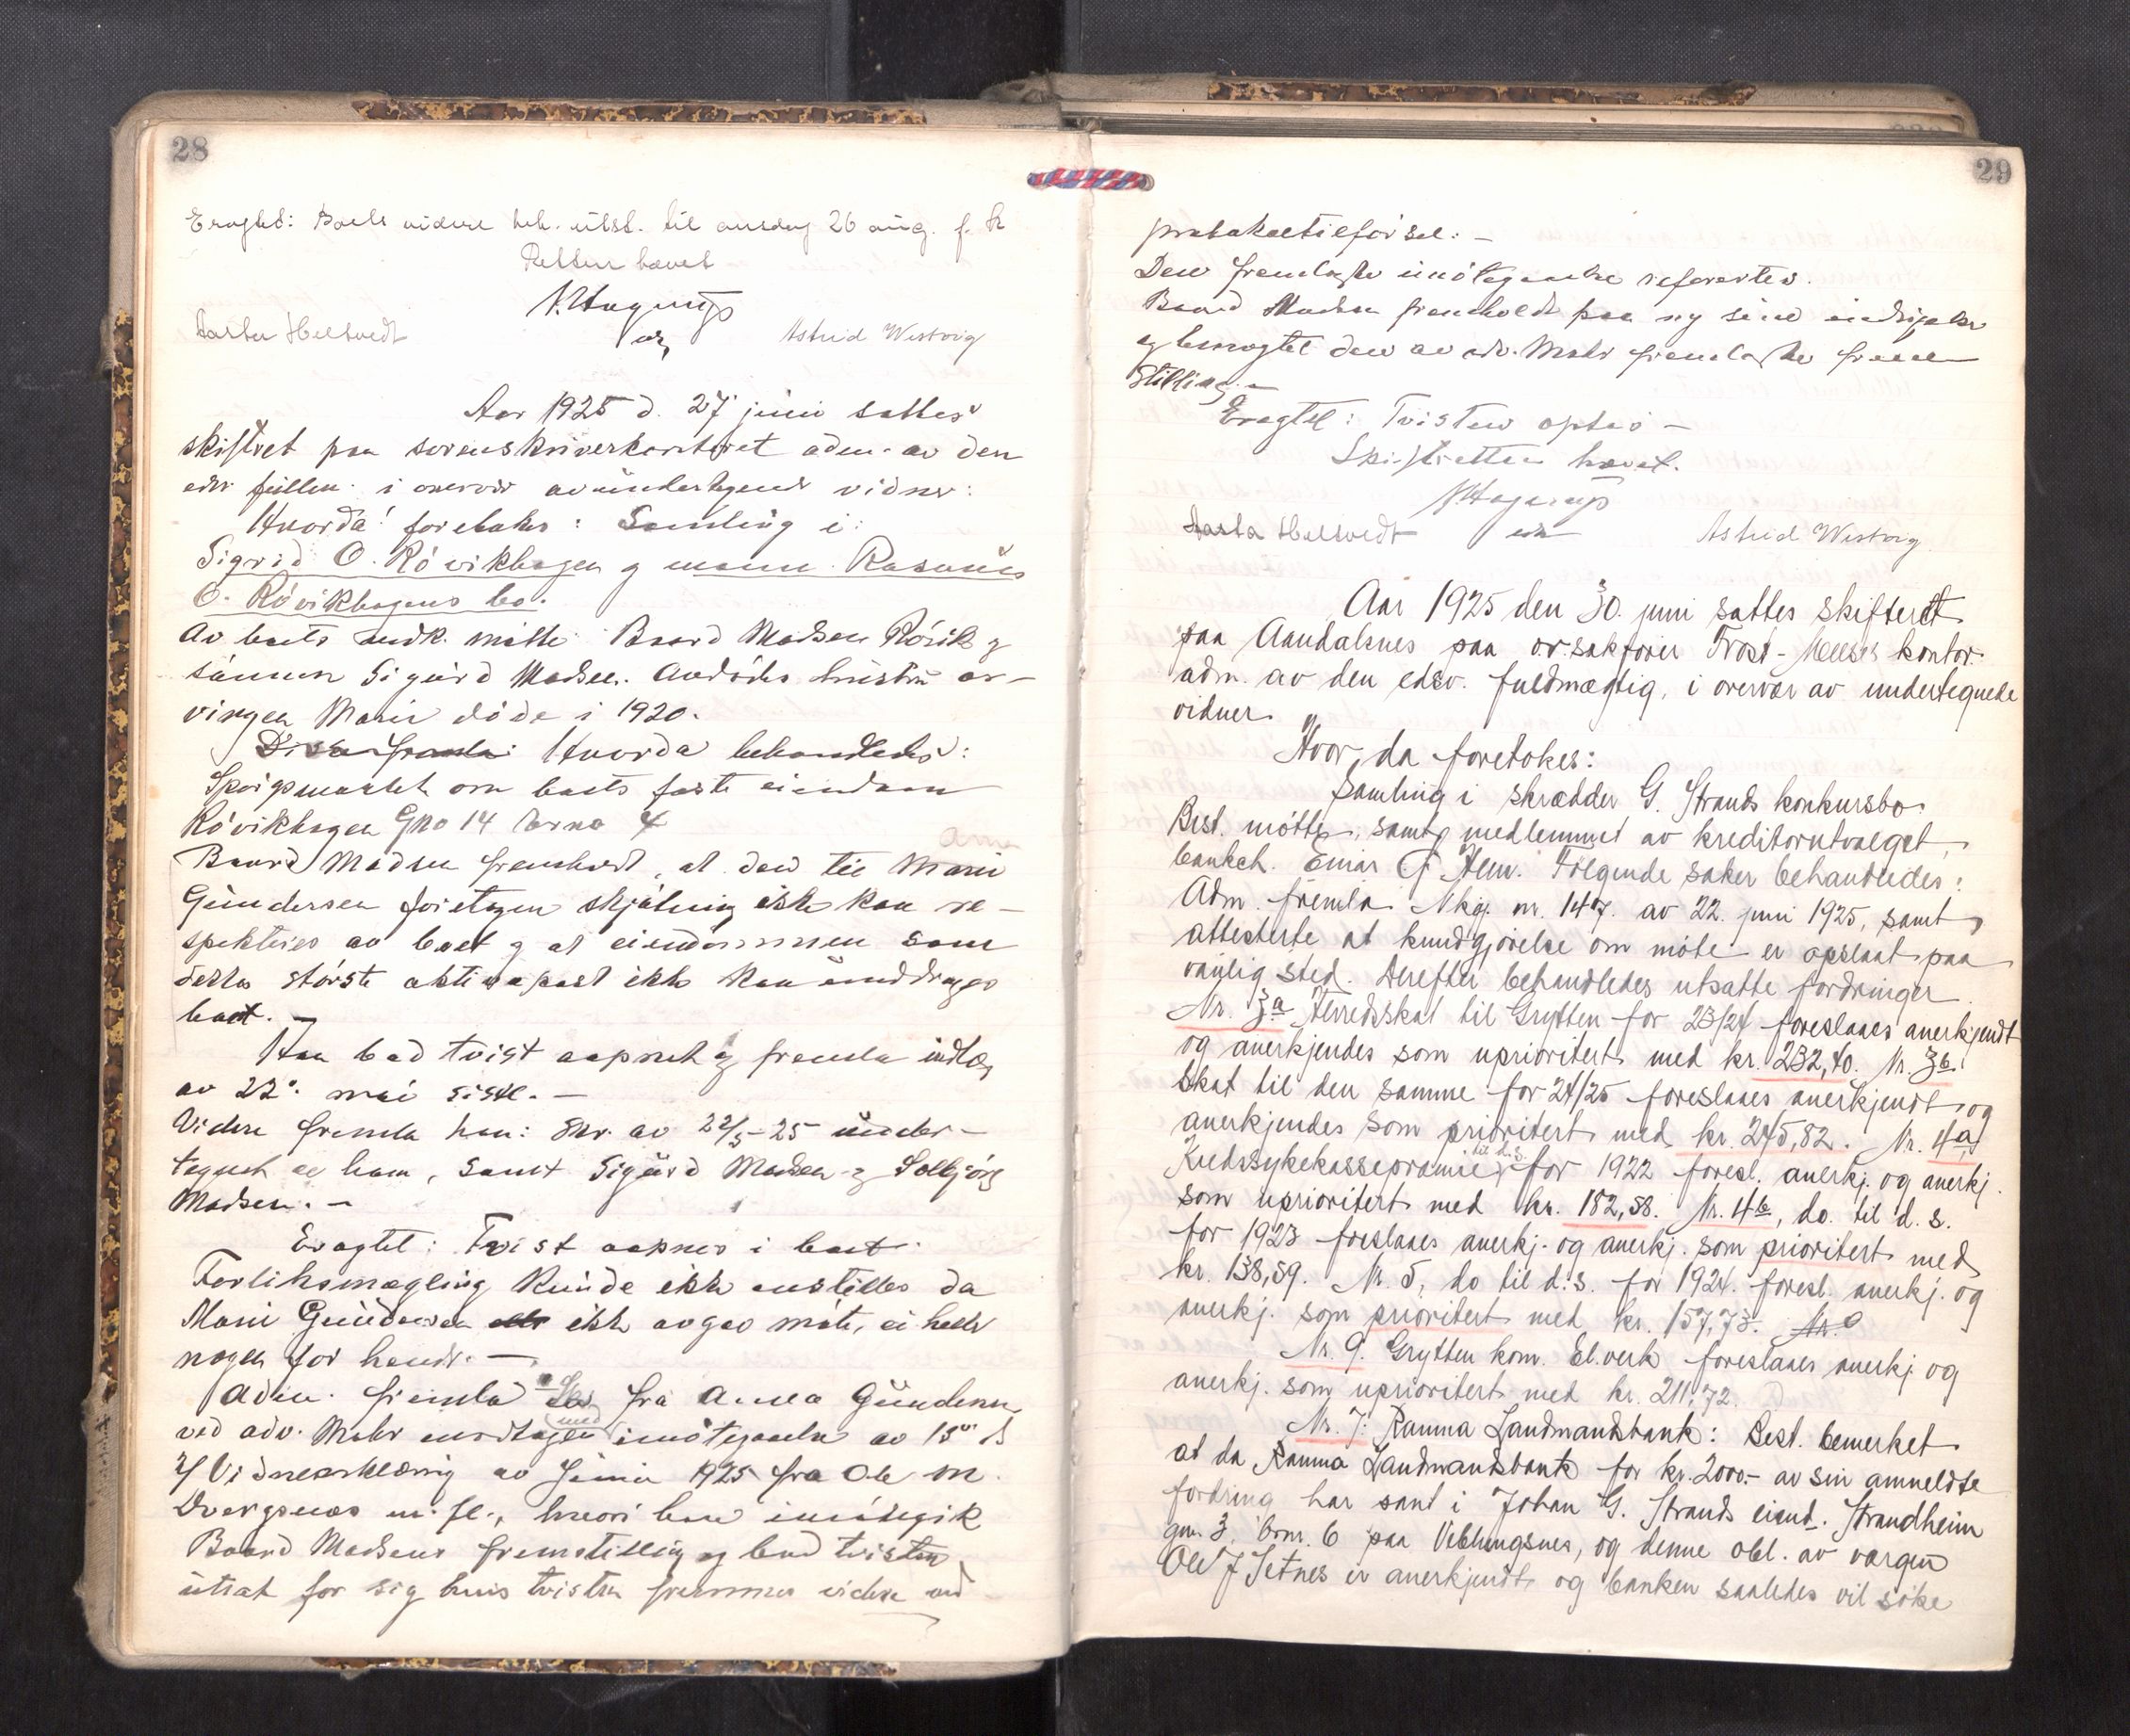 28
Eragtet: Boets videre beh. utst. til onsdag 26 aug. f. k
Retten hævet
N. Hagerup
Aasta Helsvedt edsv. Astrid Westvig
Aar 1925 d. 27 juni sattes
skifteret paa sorenskriverkontoret adm. av den
edsv fuldm. i overvær av undertegnede vidner:
Hvorda! foretokes: Samling i:
Sigrid O. Rövikhagen og mann Rasmus
O. Rövikhagens bo.
Av boets vedk. mötte Baard Madsen Rövik og
sönnen Sigurd Madsen. Avdödes hustru ar-
vingen Marie döde i 1920.
Hvorda behandledes:
Spörgsmaalet om boets faste eiendom
Rövikhagen Gno 14 brno 4
Baard Madsen fremholdt, at den til Marie
Gundersen foretagen skjötning ikke kan re-
spekteres av boet og at eiendommen som
dettes störste aktivapost ikke kan unddrages
boet. -
Han bad tvist aapnet og fremla indlæg
av 22. mai sistl. -
Videre fremla han: Skr. av 22/5-25 under-
tegnet av ham, samt Sigurd Madsen og Solbjörg
Madsen. -
Eragtet: Tvist aapnes i boet.
Forliksmægling kunde ikke anstilles da
Marie Gundersen ikke avgav möte, ei heller
nogen for hende. -
Adm. fremla fra Anna Gundersen
ved adv. Mohr mottagen med imötegaaelse av 15 ds
og Vidneerklæring av Juni 1925 fra Ole M.
Dvergsnes m. fl., hvori han imötegik
Baard Madsens fremstilling og bad tvisten
utsat for sig hvis tvisten fremmes videre ved
29
protokoltilförsel: -
Den fremlagte imötegaaelse refereertes.
Baard Madsen fremholdt paa ny sine indsigelser
og benegtet den av adv. Mohr fremlagte frem
stilling. -
Eragtet: Tvisten optas -
Skifteretten hævet.
N Hagerup
Aasta Helsvedt edsv Astrid Westvig
Aar 1925 den 30. juni sattes skifteret
paa Aandalsnes paa o.r.sakförer Trost-Meess kontor
adm. av den edsv. fuldmægtig, i overvær av undertegnede
vidner.
Hvor da foretokes:
Samling i skrædder G. Strands konkursbo.
Best. mötte, samt medlemmet av kreditorutvalget,
bankch. Einar Alm. Fölgende saker behandledes:
Adm. fremla Nkg. nr. 147. av 22. juni 1925, samt
attesterte at kundgjörelse om möte er opslaat paa
vanlig sted. Derefter behandledes utsatte fordringer.
Nr. 3a Herredsskat til Grytten for 23/24 foreslaaes anerkjendt
og anerkjendes som uprioritert med kr. 232,40. Nr. 3b.
Skat til den samme for 24/25 foreslaaes anerkjendt og
anerkjendes som prioritert med kr. 245,82. Nr. 4a,
Kredssykekassepræmie til d.s. for 1922 foresl. anerkj. og anerkj.
som uprioritert med kr. 182,58. Nr. 4b, do. til d. s.
for 1923 foreslaaes anerkj. og anerkj. som prioritert med
kr. 138,59. Nr. 5, do til d.s. for 1924. foresl. anerkj. og
anerkj. som prioritert med kr. 157,73. Nr.
Nr. 9. Grytten kom. El.verk foreslaaes anerkj og
anerkj. som uprioritert med kr. 211,72.
Nr. 7: Rauma Landmandsbank: Best. bemerket
at da Rauma Landmandsbank for kr. 2000.- av sin anmeldte
fordring har pant i Johan G. Strands eiend. Strandheim
gnr. 3, brnr. 6 paa Veblungsnes, og denne obl. av værgen
Ole J Setnes er anerkjendt, og banken saaledes vil söke